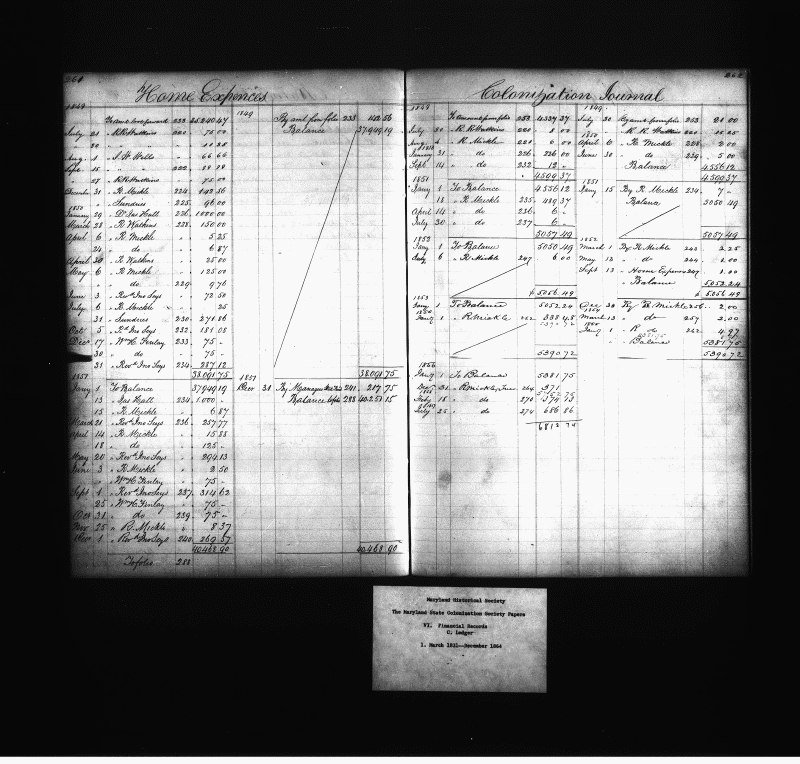 261
Home Expences
1849
To amt brot forward 233 35240.47
July 21 " R R Watkins 220 75.00
20 " " " 11.25
Aug. 1 " S. H. Wells " 66.66
Sept. 15 " " 222
" 27 " R R Watkins " 75.00
December 31 " R. Mickle 224 142.56
" Sundries 225 96.00
1850
January 29 " Dr Jas Hall 226 1000.00
March 28 " R Watkins 228 150.00
April 6 " R Mickle " 5.25
24 " do " 6.87
April 30 " R Watkins " 25.00
May 6 " R Mickle " 125.00
" do 229 9.76
June 3 " Revd Jno Seys " 72.50
July 6 " R Mickle " 25
31 " Sundries 230 271.86
Octr 5 " Rev Jno Seys 232 181.08
Decr 17 " Wm H. Finlay 233 75 -
30 " do " 75 -
31 " Revd Jno Seys 234 287.12
38091.75
1851
Jany 1 To Balance 37949.19
13 " Jas Hall 234 1.000
15 " R Mickle " 6.87
March 21 " Revd Jno Seys 236 257.77
April 14 " R Mickle " 15.88
18 " do " 125 -
May 20 " Revd Jno Seys " 294.13
June 3 " R Mickle " 2.50
" Wm H. Finlay " 75 -
Sept 1 " Revd Jno Seys 237 314.62
25 " Wm H. Finlay " 75 -
Oct 31 " do 239 75 -
Nov 25 " R. Mickle " 8.37
Decr 1 " Revd Jno Seys 240 269.57
40.468.90
To folio 288
1849
By amt from folio 233 142.56
Balance 37949.19
38091.75
1851
Decr 31 By Managers 241 217.75
Balance to folio 288 40.251.15
40.468.90
262
Colonization Journal
1849
To Amount from folio 253 4337.37
July 30 " R. R. Watkins 220 8.00
Aug 4 " R. Mickle 220 6.00
1850
January 31 " do 226 236.00
Sept 14 " do 232 12 -
4599.37
1851
Jany 1 To Balance 4556.12
18 " R. Mickle 235 489.37
April 14 " do 236 6 -
July 30 " do 237 6 -
5057.49
1852
Jany 1 To Balance 5050.49
July 6 " R. Mickle 247 6.00
$ 5056.49
1853
Jany 1 To Balance 5052.24
Jany 1 " R Mickle 262 338.48
5390.72
5390.72
Jany 1 To Balance 5381.75
Decr 31 " R Mickle, 264 371
July 18 " do 270
July 25 " do 274 686.86
6812.74
1849
July 30 By amt from folio 253 21.00
" R. R. Watkins
1850
April 6 " R. Mickle 228 2.00
June 30 " do 229 5.00
Balance 4556.12
4599.37
1851
Jany 15 By R. Mickle 234 7 -
Balance 5050.49
5057.49
1852
March 1 By R Mickle 243 2.25
May 12 " do 244 1.00
Sept 13 " Home Expenses 247 1.00
" Balance 5052.24
$ 5056.49
Dec 28 By R Mickle 256 2.00
1854
March 13 " do 257 2.00
Jany 1 " R do 262 4.97
" Balance 5381.75
5390.72
Maryland Historical Society
The Maryland State Colonization Society Papers
VI. Financial Records
C. Ledger
1. March 1831--December 1864